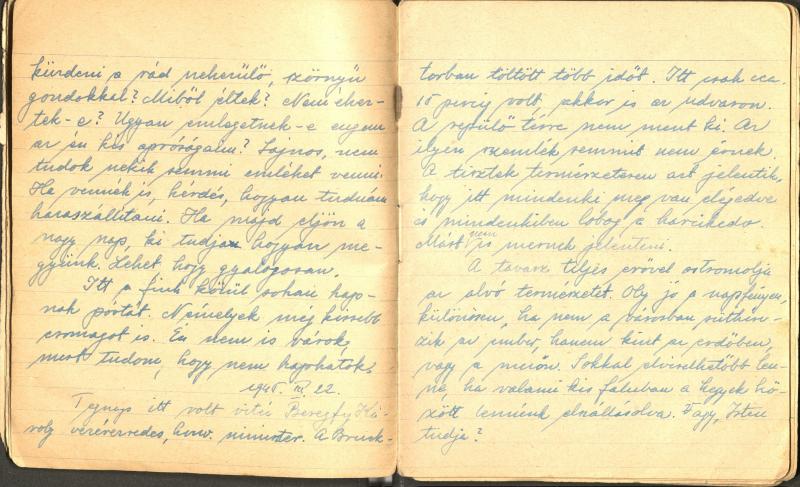 küzdeni a rád nehezülő, szörnyű
gondokkal? Miből éltek? Nem éhez-
tek-e? Ugyan emlegetnek-e engem
az én kis apróságaim? Sajnos, nem
tudok nekik semmi emléket venni.
Ha vennék is, kérdés, hogyan tudnám
hazaszállítani. Ha majd eljön a
nagy nap, ki tudja hogyan me-
gyünk. Lehet hogy gyalogosan.
Itt a fiuk közül sokan kap-
nak postát. Némelyek még kisebb
csomagot is. Én nem is várok,
mert tudom, hogy nem kaphatok.
1945. III. 22.
Tegnap itt volt vitéz Beregfy Ká-
roly vezérezredes, honv. miniszter. A Bruck-
torban töltött több időt. Itt csak cca.
15 percig volt, akkor is az udvaron.
A repülő térre nem ment ki. Az
ilyen szemlék semmit nem érnek.
A tisztek természetesen azt jelentik,
hogy itt mindenki meg van elégedve
és mindenkiben lobog a harcikedv.
Mást nem is mernek jelenteni.
A tavasz teljes erővel ostromolja
az alvó természetet. Oly jó a napfényen,
különösen, ha nem a városban sütkére-
zik az ember, hanem kint az erdőben,
vagy a mezőn. Sokkal elviselhetőbb len-
ne, ha valami kis faluban a hegyek kö-
zött lennénk elszállásolva. Vagy, Isten
tudja?